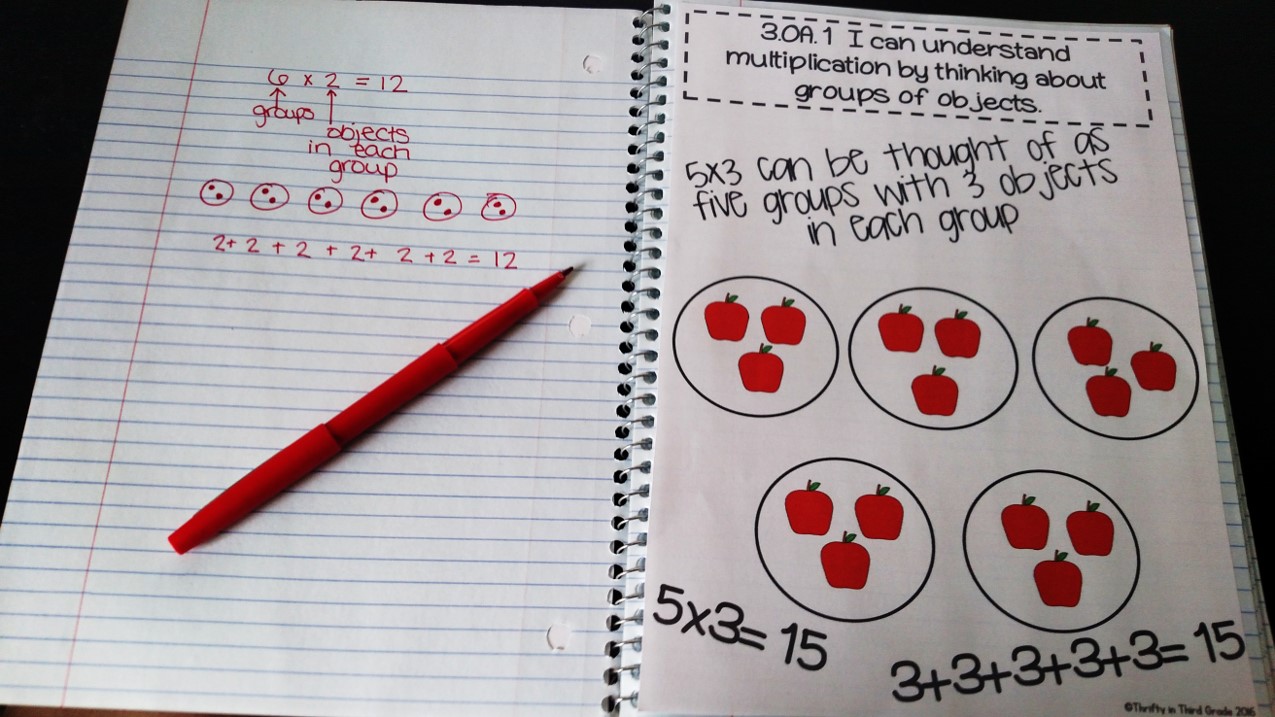 6 x 2 = 12
groups
objects
in each
group
2+ 2 + 2 + 2+ 2 + 2 = 12
3.OA.1 I can understand
multiplication by thinking about
groups of objects.
5x3 can be thought of as
five groups with 3 objects
in each group
5x3= 15
3+3+3+3+3= 15
©Thrifty in Third Grade 2016